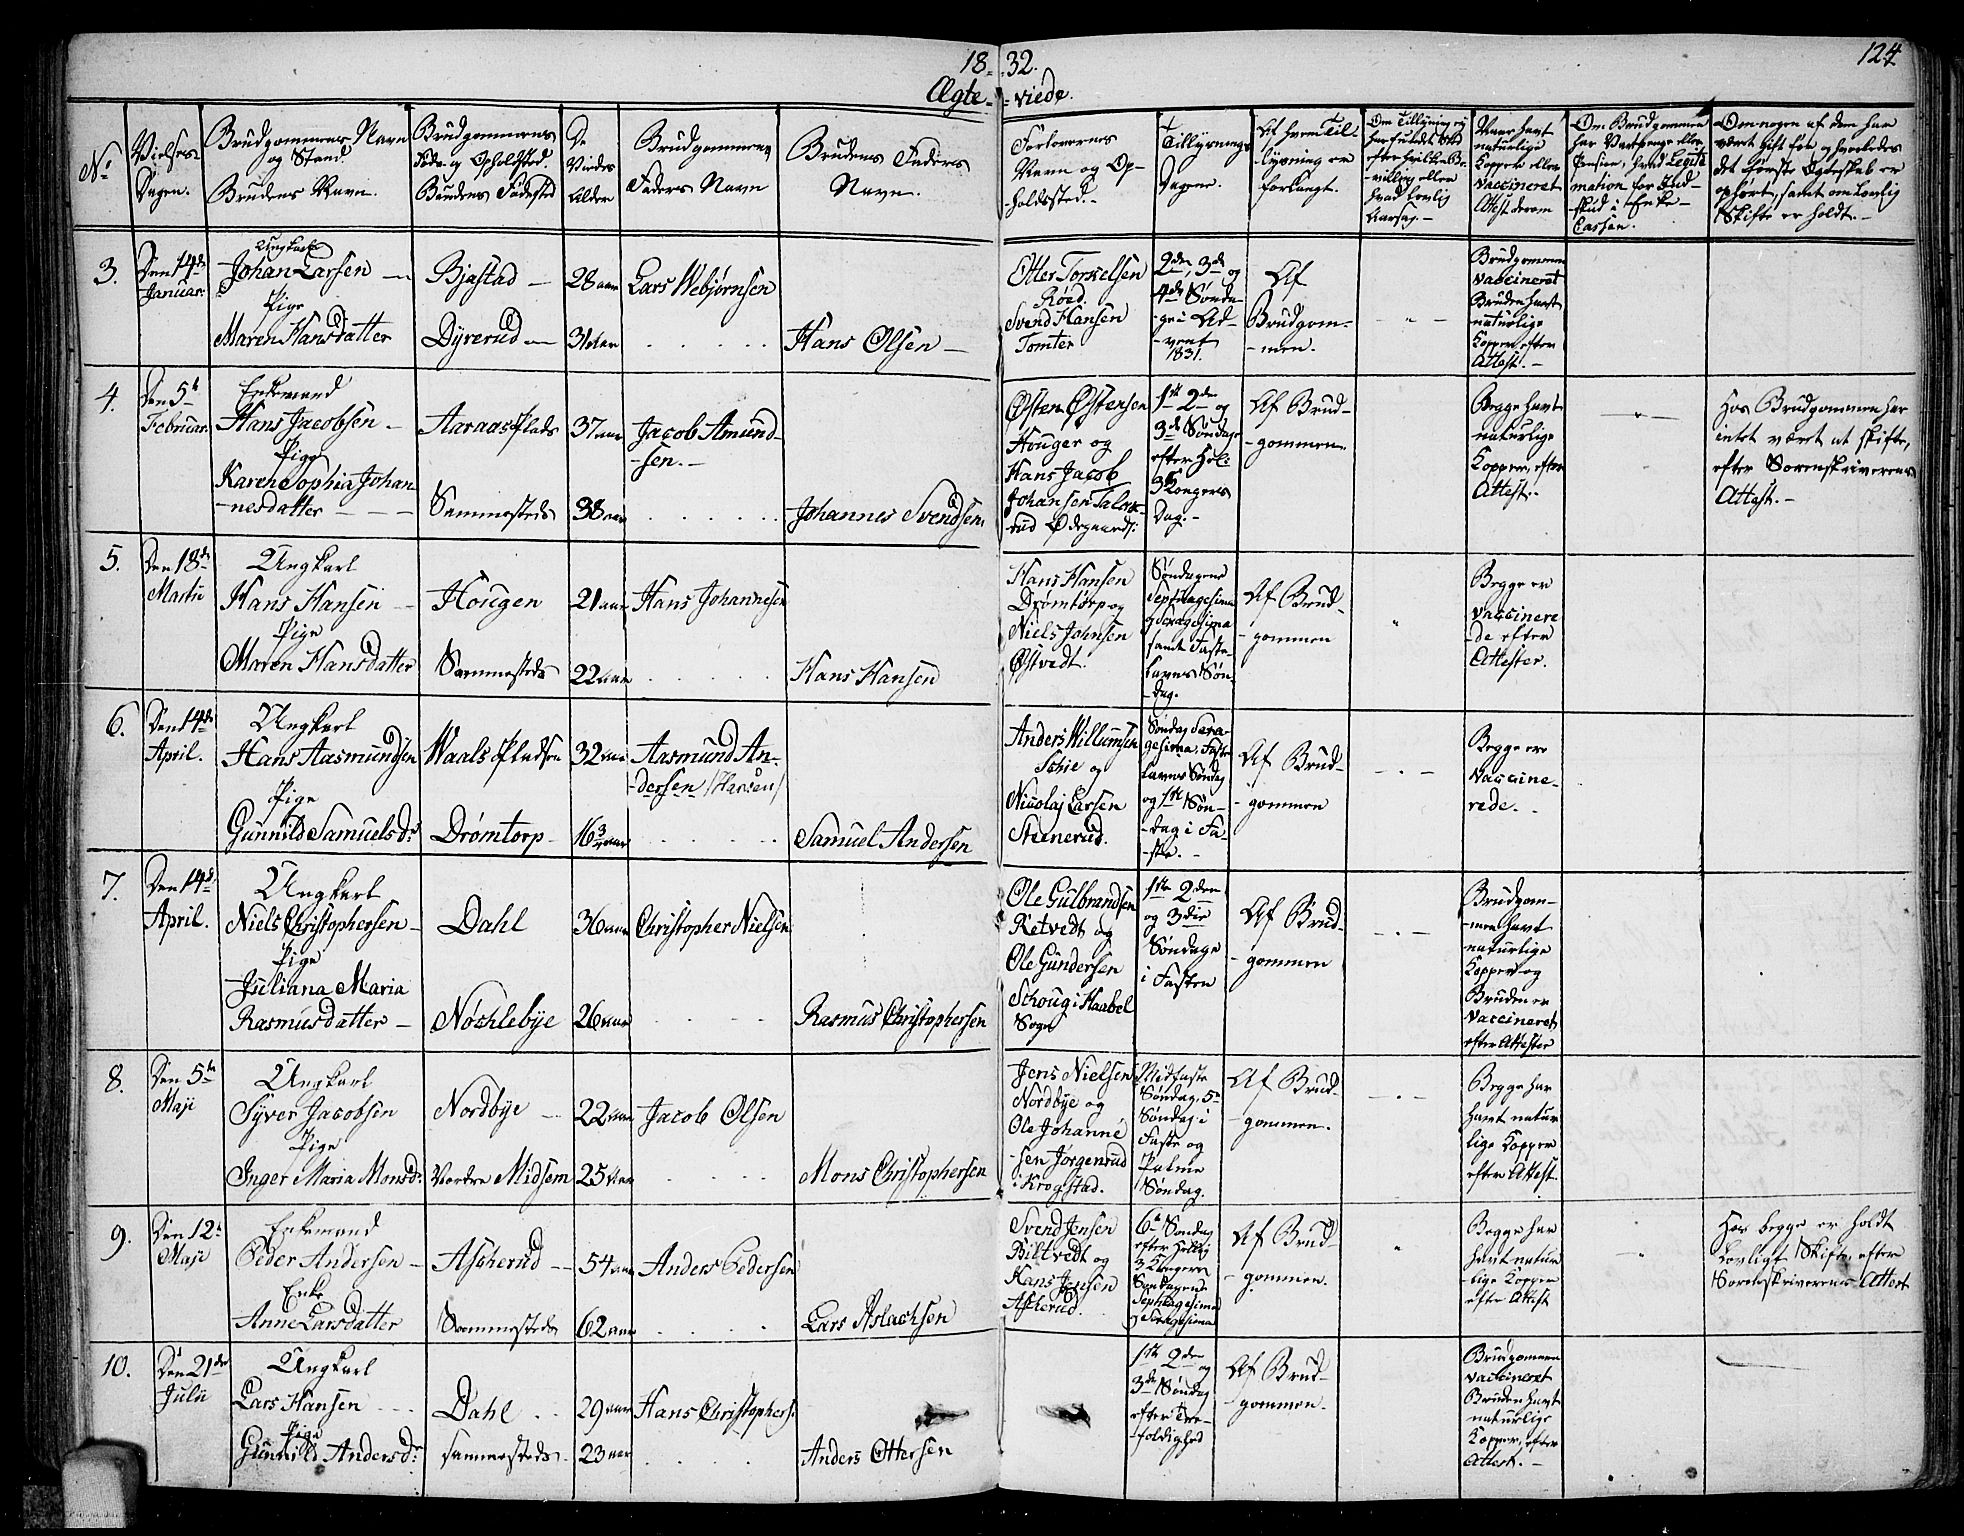 18 32.
124
Ægte viede.
No
Vielses Dagen.
Brudgommens Navn og Stand.
Brudens Navn.
Brudgommens Føde- og Opholdsted.
Brudens Fødested
De Viedes Alder
Brudgommens Faders Navn
Brudens Faders Navn.
Forlovernes Navn og Opholdssted.
Tillysnings Dagene.
Af hvem Tillysning er forlangt.
Om Tillysning ey har fundet Sted efter hvilken Bevilling eller hvad lovlig Aarsag.
Naar havt naturlige Kopper eller vaccineret Attest derom
Om Brudgommen har Vartpenge eller Pension, hans Legitimation for Indskud i Enke-Cassen.
Om nogen af dem har været gift før, og hvorledes det første Ægteskab er ophørt, samt om lovlig Skifte er holdt.
3.
Den 14de Januar.
Ungkarl
Johan Larsen
Pige
Maren Hansdatter
Bjastad
Dyrerud
28 aar
31 aar
Lars Webjørnsen
Hans Olsen
Otter Torkelsen
Röed.
Svend Hansen
Tomter
2den, 3die og
4de Sønda-
ge i Ad-
vent
1831.
Af
Brudgom-
men.
Brudgommen
vaccineret
Bruden havt
naturlige
Kopper efter
Attest.
4.
Den 5te Februar
Enkemand
Hans Jacobsen
Pige
Karen Sophia Johan
nesdatter
Aaraasplads
Sammesteds
37 aar
38 aar
Jacob Amund-
sen.
Johannes Svendsen
Østen Østensen
Houger og
Hans Jacob
Johansen
1ste 2den og
3die Søndage
efter Hel:
3 Kongers
Dag.
Af Brud-
gommen
Begge havt
naturlige
Kopper, efter
Attest.
Hos Brudgommen har
intet været at skifte,
efter Sorenskriverens
Attest.
5.
Den 18de Martii
Ungkarl
Hans Hansen
Pige
Maren Hansdatter
Hougen
Sammesteds
21 aar
22 aar
Hans Johannesen
Hans Hansen
Hans Hansen
Drømtorp og
Niels Johnsen
Østvedt.
Søndagene
Septuagesima
og Sexagesima
samt Faste-
lavns Søn-
dag.
Af Brud-
gommen
Begge er
vaccinere
de efter
Attester.
6.
Den 14de April.
Ungkarl
Hans Aasmundsen
Pige
Gunnild Samuelsd:
Waalspladsen
Drømtorp
32 aar
16 3/4 aar
Aasmund An-
dersen /Hansen/
Samuel Andersen
Anders Willumsen
Schie og
Nicolaj Larsen
Steenerud.
Søndag Sexa-
gesima, Faste
lavns Søndag
og 1ste Søn-
dag i Fa-
ste.
Af Brud-
gommen
Begge ere
vaccine-
rede.
7.
Den 14de April.
Ungkarl
Niels Christophersen
Pige
Juliana Maria
Rasmusdatter
Dahl
Nøchlebye
36 aar
26 aar
Christopher Nielsen
Rasmus Christophersen
Ole Gulbrandsen
Retvedt og
Ole Gundersen
Schoug i Haabøl
Sogn
1ste 2den
og 3die
Søndage
i Fasten
Af Brud-
gommen
Brudgom-
men havt
naturlige
Kopper og
Bruden er
vaccineret
efter Attester
8.
Den 5te Maji
Ungkarl
Syver Jacobsen
Pige
Inger Maria Monsd:
Nordbye
Nordre Midsem
22 aar
25 aar
Jacob Olsen
Mons Christophersen
Jens Nielsen
Nordbye og
Ole Johanne
sen Jørgenrud
i Krogstad.
Midfaste
Søndag, 5te
Søndag i
Faste og
Palme
Søndag.
Af Brud-
gommen.
Begge har
havt natur
lige Kopper
efter Attest.
9.
Den 12te Maji
Enkemand
Peder Andersen
Enke
Anne Larsdatter
Ascherud
Sammesteds
54 aar
62 aar
Anders Pedersen
Lars Aslachsen
Svend Jensen
Biltvedt og
Hans Jensen
Askerud.
6te Søndag
efter Hellig
3 Konger
Søndagene
Septuagesima
og Sexagesima
Af Brud-
gommen.
Begge har
havt natur
lige Kopper
efter Attest
Hos begge er holdt
Lovligt Skifte, efter
Sorenskriverens Attest
10.
Den 21de Julii
Ungkarl
Lars Hansen
Pige
Gunnild Andersd:
Dahl
sammesteds
29 aar
23 aar
Hans Christophers:
Anders Ottersen
1ste 2den og
3die Søndag
efter Tre-
foldighed
Af Brud-
gommen.
Brudgommen
vaccineret
Bruden havt
naturlige
Kopper, efter
Attest.